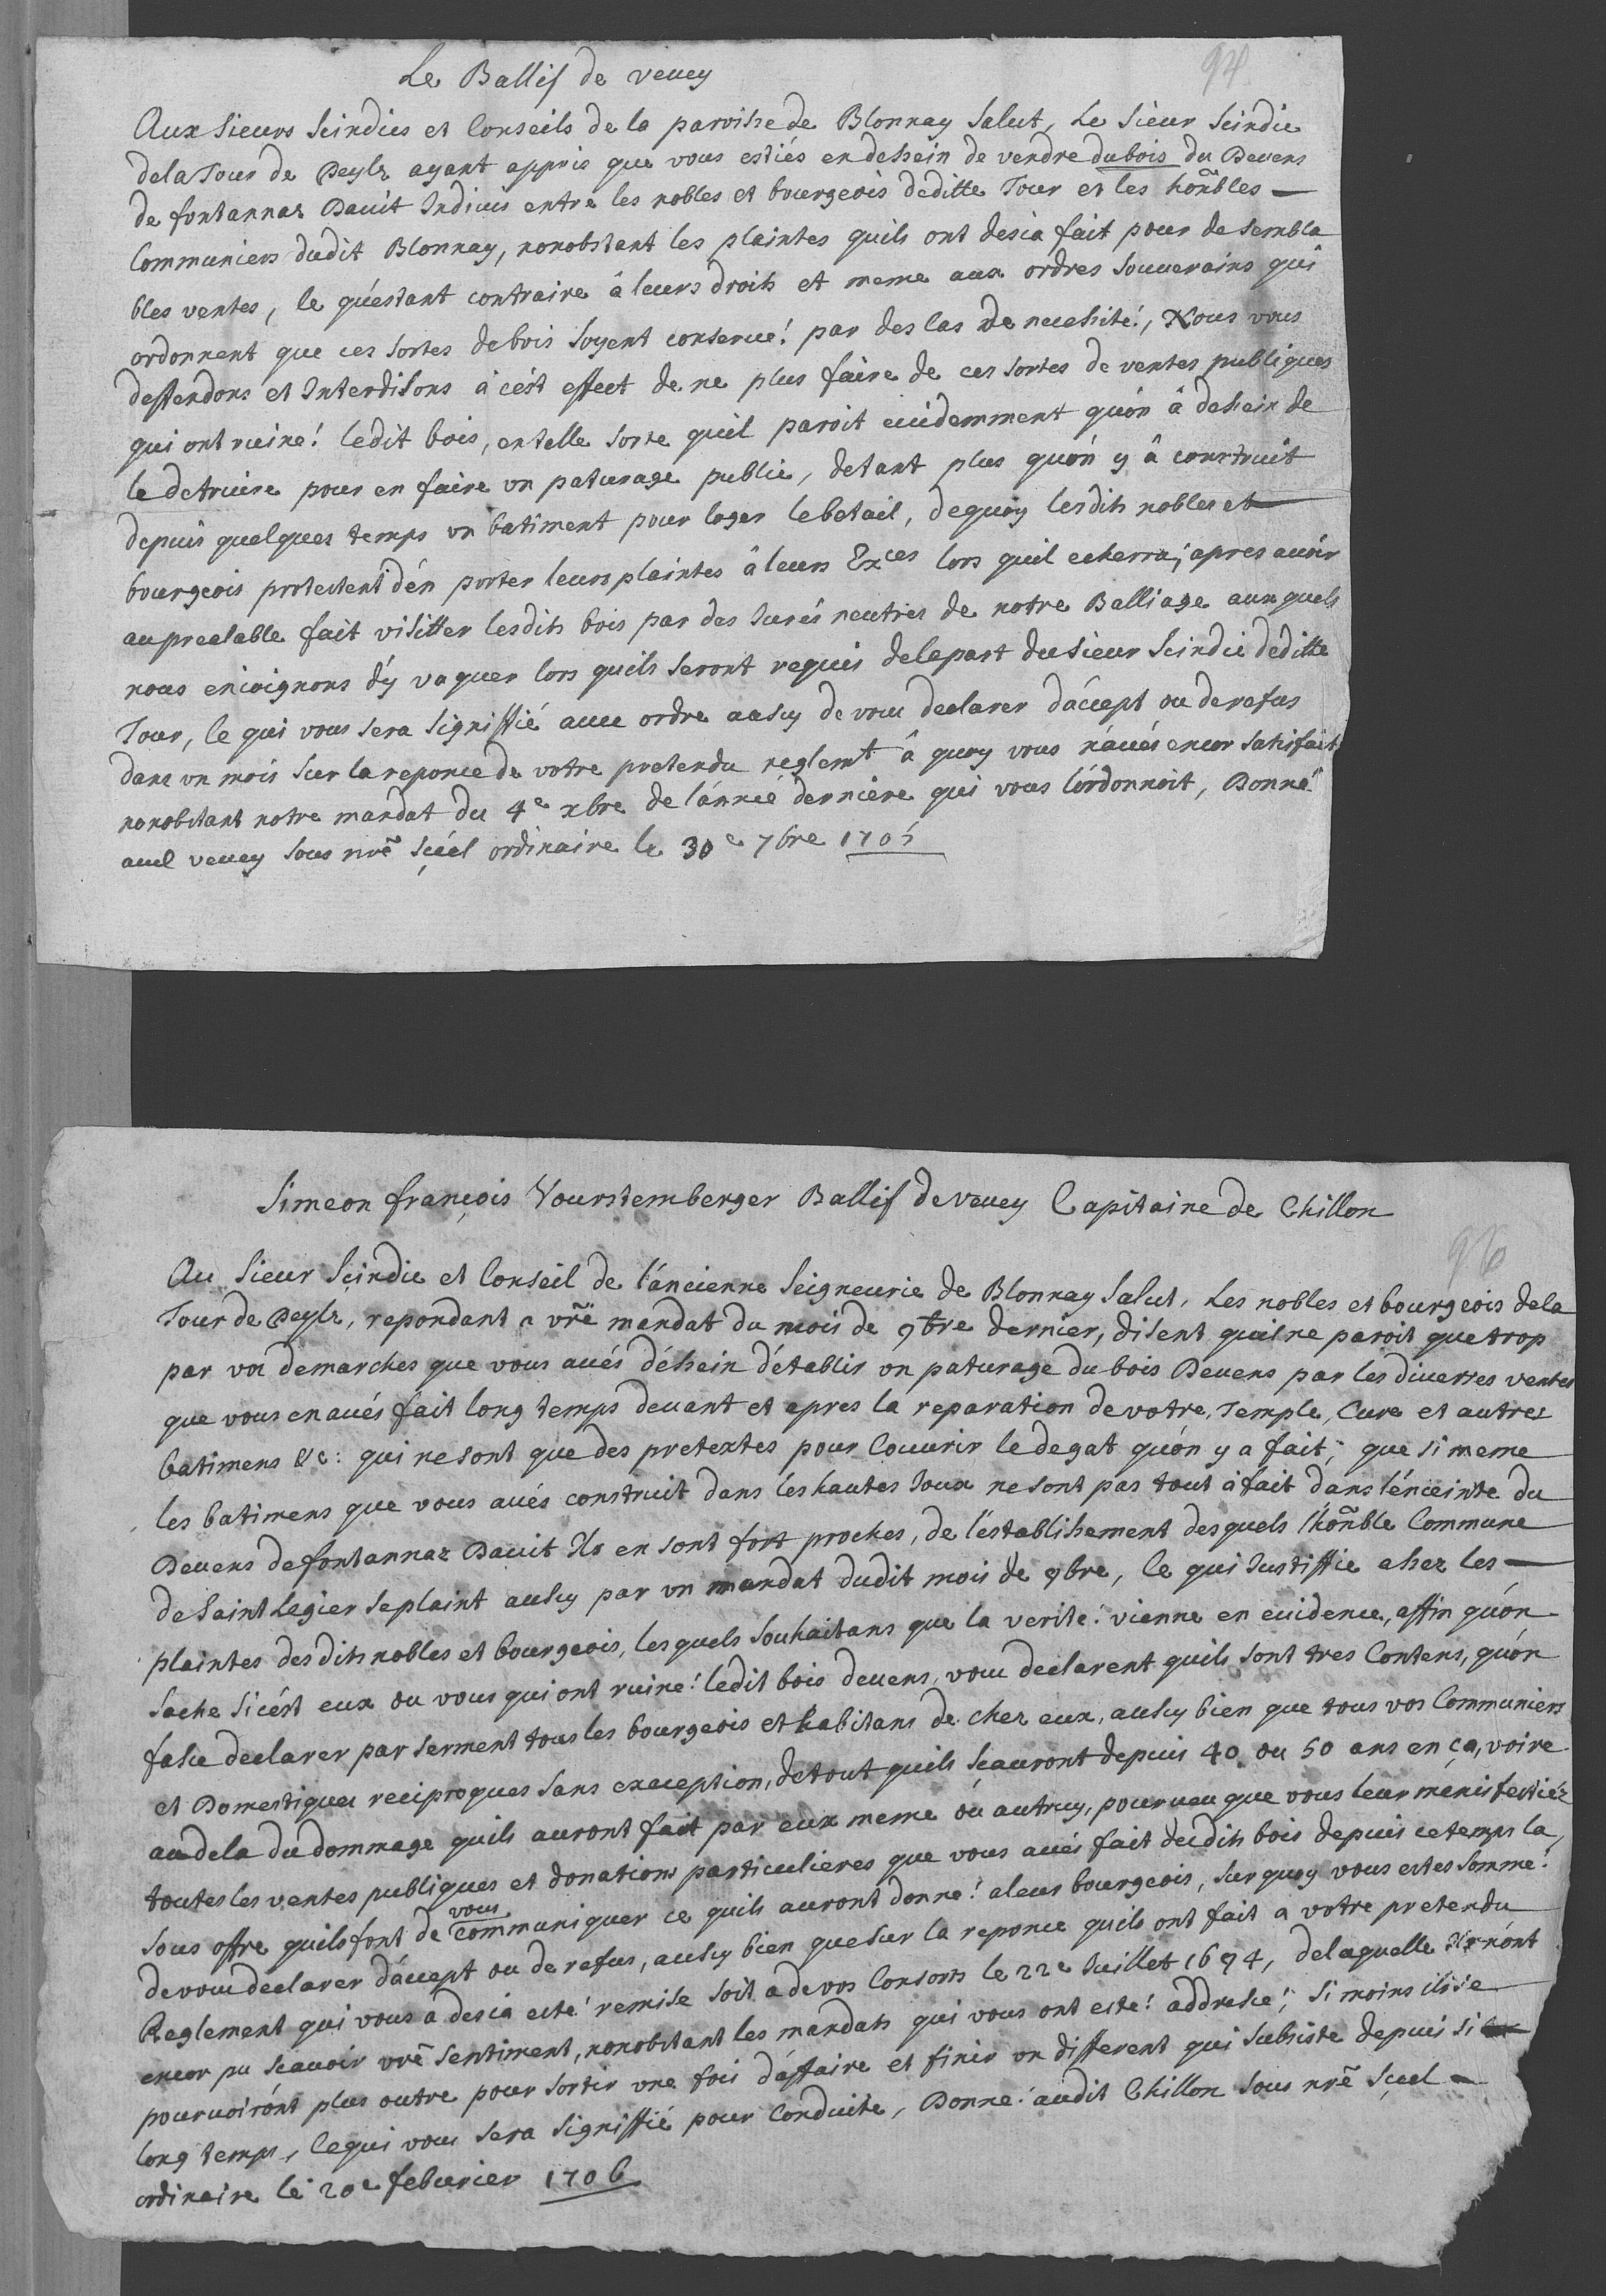 94
Le Ballif de veuey
Aux Sieurs Scindics et Conseils de la paroisse de Blonnay Salut, Le Sieur Scindic
dela Tour de Peylz ayant appris que vous estiés en dessein de vendre du bois du Deuens
de fontannaz Dauit Indiuis entre les nobles et bourgeois deditte Tour et les honbles
Communiers dudit Blonnay, nonobstant les plaintes quils ont desia fait pour de sembla
bles ventes, le qu'estant contraire â leurs droits et meme aux ordres souuerains qui
ordonnent que ces sortes debois soyent conserué! par des cas de necessité!, Nous vous
deffendons et Interdisons à cést effect de ne plus faire de ces sortes de ventes publiques
qui ont ruiné! ledit bois, entelle sorte quil paroit euidemment quón â dessein de
le detruire pour en faire un paturage public, detant plus quón y â construit
depuis quelques temps un batiment pour loger lebetail, dequoy lesdits nobles et
bourgeois protestent dén porter leurs plaintes â leurs Exces lors quil echerra, apres auoir
aupreallable fait visitter lesdits bois par des Jurés neutres de notre Balliage auxquels
nous enioignons d'y vaquer lors quils seront requis delapart du sieur Scindic deditte
Tour, le qui vous sera signiffié auec ordre aussy de vous declarer dáccept ou derefus
dans un mois sur lareponce de votre pretendu reglemt â quoy vous náués encor satisfait
nonobstant notre mandat du 4e xbre de lánnée derniere qui vous lórdonnoit, Donné
aud veuey sous nrẽ scéel ordinaire le 30e 7bre 1705
96
Simeon françois Vourstemberger Ballif deveuey Capitaine de Chillon
Au Sieur Scindic et Conseil de láncienne Seigneurie de Blonnay Salut, Les nobles et bourgeois dela
Tour de Peylz, repondant a vrẽ mandat du mois de 9bre dernier, disent quilne paroit que trop
par vos demarches que vous aués déssein détablir un paturage du bois Deuens par les diuerses ventes
que vous enaués fait long temps deuant et apres la reparation de votre Temple, Cure et autres
batimens &c: qui ne sont que des pretextes pour Couurir le degat quón y a fait; que si meme
les batimens que vous aués construit dans les hautes Joux ne sont pas tout à fait dans lénceinte du
Deuens defontannaz Dauit Ils en sont fort proches, de léstablissement desquels lhonble Commune
de Saint Legier seplaint aussy par un mandat dudit mois de 9bre, le qui Justiffie assez les
plaintes desdits nobles et bourgeois, lesquels souhaitans que la verité! vienne en euidence, affin quón
sache si cést eux ou vous qui ont ruiné! ledit bois deuens, vous declarent quils sont tres Contens, quón
fasse declarer par serment tous les bourgeois et habitans de chez eux, aussy bien que tous vos Communiers
et Domestiques reciproques sans exception, detout quils sçauront depuis 40 ou 50 ans en ça, voire
audela dudommage quils auront fait par eux meme ou autruy, pourueu que vous leur manifestiéz
toutes les ventes publiques et donations particulieres que vous aués fait desdits bois depuis cetemps la,
sous offre quils font de vous communiquer ce quils auront donné! aleurs bourgeois, sur quoy vous estes sommé!
devous declarer dáccept ou de refus, aussy bien que sur la reponce quils ont fait a votre pretendu
Reglement qui vous a desia esté! remise soit a devos Consorts le 22e Juillet 1694, delaquelle Ils nónt
encor pu scauoir vrẽ sentiment, nonobstant les mandats qui vous ont esté! addressé!; si moins ils se
pouruoirónt plus outre pour sortir une fois dáffaire et finir un different qui subsiste depuis si
long temps, Cequi vous sera signiffié pour Conduite, Donné! audit Chillon sous nrẽ Sçeel
ordinaire le 20e feburier 1706